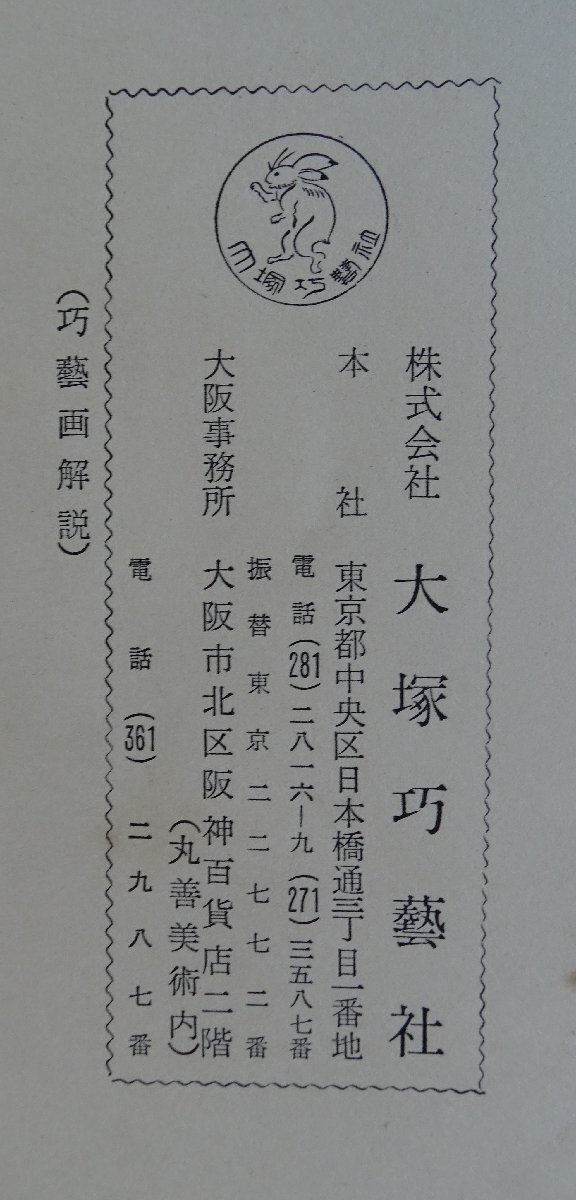 大塚巧藝社
株式会社 大塚巧藝社
本社 東京都中央区日本橋通三丁目一番地
電話(281)二八一六―九 (271)三五八七番
振替東京二二七七二番
大阪事務所 大阪市北区阪神百貨店二階
(丸善美術内)
電話(361)二九八七番
(巧藝画解説)